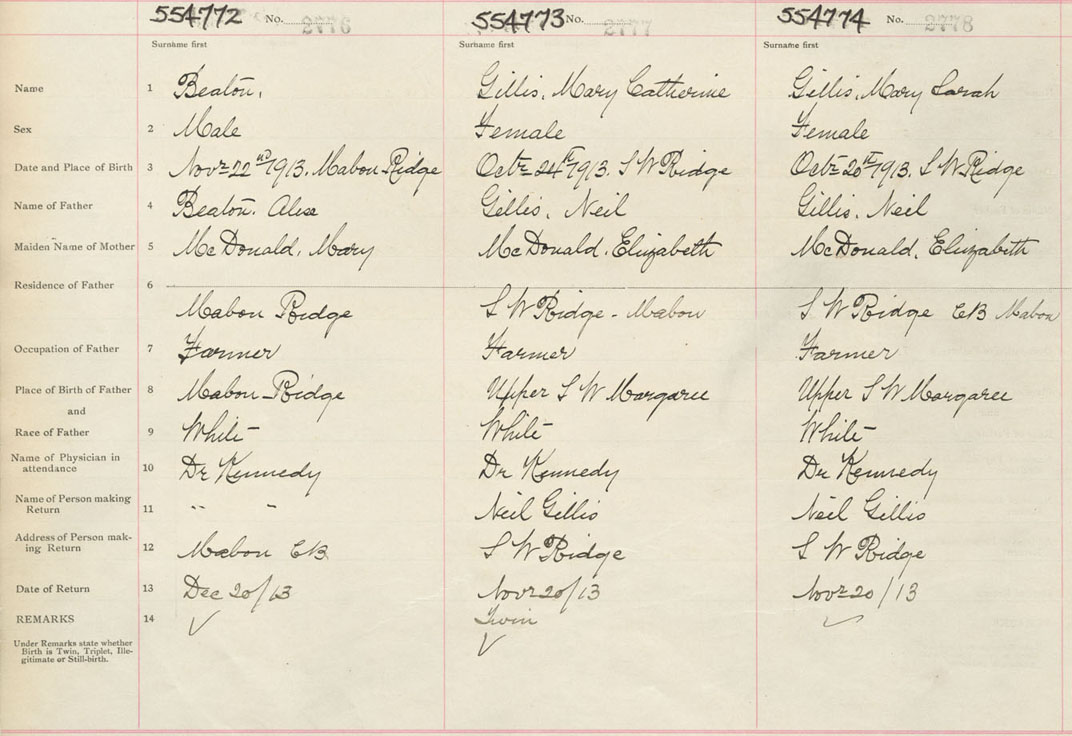 554772 No. 2776 554773 No. 2777 554774 No. 2778
Surname first Surname first Surname first
Name 1 Beaton, Gillis, Mary Catherine Gillis, Mary Sarah
Sex 2 Male Female Female
Date and Place of Birth 3 Novr 22nd 1913. Mabou Ridge Octr 24th 1913. S W Ridge Octr 20th 1913. S W Ridge
Name of Father 4 Beaton. Gillis, Neil Gillis, Neil
Maiden Name of Mother 5 McDonald, Mary McDonald, Elizabeth McDonald, Elizabeth
Residence of Father 6
Mabou Ridge S W Ridge - Mabou S W Ridge CB Mabou
Occupation of Father 7 Farmer Farmer Farmer
Place of Birth of Father 8 Mabou Ridge Upper S W Margaree Upper S W Margaree
and
Race of Father 9 White White White
Name of Physician in
attendance 10 Dr Kennedy Dr Kennedy Dr Kennedy
Name of Person making
Return 11 " " Neil Gillis Neil Gillis
Address of Person mak-
ing Return 12 Mabou CB S W Ridge S W Ridge
Date of Return 13 Dec 20/13 Novr 20/13 Novr 20/13
REMARKS 14 Twin
Under Remarks state whether
Birth is Twin, Triplet, Ille-
gitimate or Still-birth.